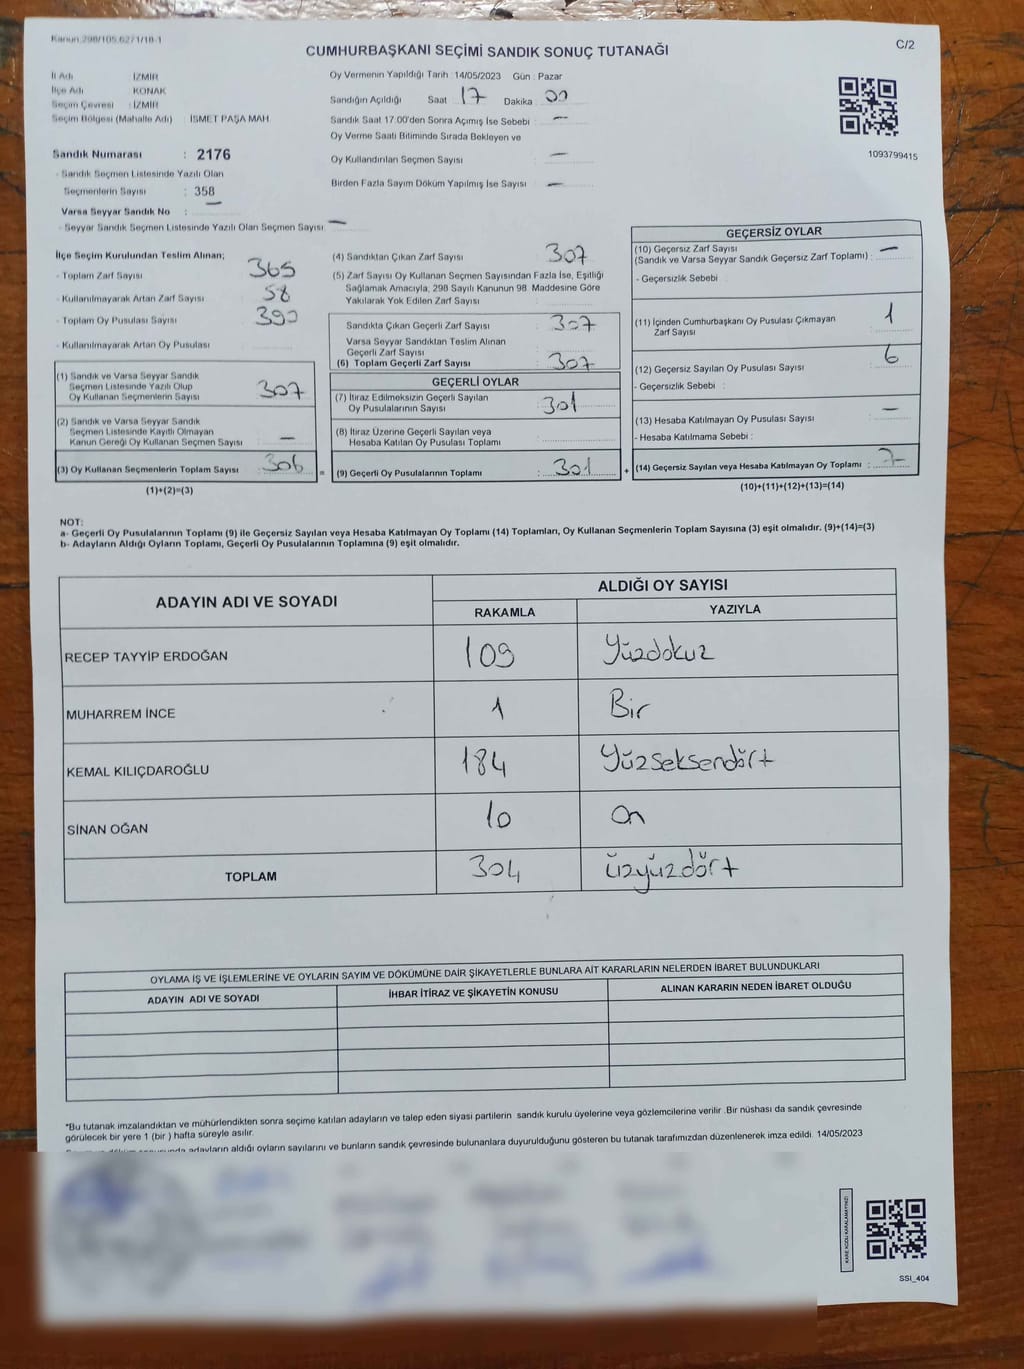 Kanun 298/105,6271/18-1
C/2
CUMHURBAŞKANI SEÇİMİ SANDIK SONUÇ TUTANAĞI
İl Adı İZMİR
İlçe Adı KONAK
Seçim Çevresi : İZMİR
Seçim Bölgesi (Mahalle Adı) : İSMET PAŞA MAH
Oy Vermenin Yapıldığı Tarih : 14/05/2023 Gün : Pazar
Sandığın Açıldığı Saat 17 Dakika 00
Sandık Saat 17.00'den Sonra Açımış İse Sebebi : —
Oy Verme Saati Bitiminde Sırada Bekleyen ve
Oy Kullandırılan Seçmen Sayısı : —
Birden Fazla Sayım Döküm Yapılmış İse Sayısı : —
1093799415
Sandık Numarası : 2176
- Sandık Seçmen Listesinde Yazılı Olan
Seçmenlerin Sayısı : 358
Varsa Seyyar Sandık No : —
- Seyyar Sandık Seçmen Listesinde Yazılı Olan Seçmen Sayısı : —
İlçe Seçim Kurulundan Teslim Alınan;
- Toplam Zarf Sayısı 365
- Kullanılmayarak Artan Zarf Sayısı 58
- Toplam Oy Pusulası Sayısı 390
- Kullanılmayarak Artan Oy Pusulası
(1) Sandık ve Varsa Seyyar Sandık
Seçmen Listesinde Yazılı Olup
Oy Kullanan Seçmenlerin Sayısı 307
(2) Sandık ve Varsa Seyyar Sandık
Seçmen Listesinde Kayıtlı Olmayan
Kanun Gereği Oy Kullanan Seçmen Sayısı —
(3) Oy Kullanan Seçmenlerin Toplam Sayısı 306
(1)+(2)=(3)
(4) Sandıktan Çıkan Zarf Sayısı 307
(5) Zarf Sayısı Oy Kullanan Seçmen Sayısından Fazla İse, Eşitliği
Sağlamak Amacıyla, 298 Sayılı Kanunun 98. Maddesine Göre
Yakılarak Yok Edilen Zarf Sayısı :
Sandıkta Çıkan Geçerli Zarf Sayısı : 307
Varsa Seyyar Sandıktan Teslim Alınan
Geçerli Zarf Sayısı
(6) Toplam Geçerli Zarf Sayısı : 307
GEÇERLİ OYLAR
(7) İtiraz Edilmeksizin Geçerli Sayılan
Oy Pusulalarının Sayısı : 301
(8) İtiraz Üzerine Geçerli Sayılan veya
Hesaba Katılan Oy Pusulası Toplamı :
= (9) Geçerli Oy Pusulalarının Toplamı : 301
GEÇERSİZ OYLAR
(10) Geçersiz Zarf Sayısı
(Sandık ve Varsa Seyyar Sandık Geçersiz Zarf Toplamı) : —
- Geçersizlik Sebebi :
(11) İçinden Cumhurbaşkanı Oy Pusulası Çıkmayan
Zarf Sayısı : 1
(12) Geçersiz Sayılan Oy Pusulası Sayısı : 6
- Geçersizlik Sebebi :
(13) Hesaba Katılmayan Oy Pusulası Sayısı : —
- Hesaba Katılmama Sebebi :
+ (14) Geçersiz Sayılan veya Hesaba Katılmayan Oy Toplamı : 7
(10)+(11)+(12)+(13)=(14)
NOT:
a- Geçerli Oy Pusulalarının Toplamı (9) ile Geçersiz Sayılan veya Hesaba Katılmayan Oy Toplamı (14) Toplamları, Oy Kullanan Seçmenlerin Toplam Sayısına (3) eşit olmalıdır. (9)+(14)=(3)
b- Adayların Aldığı Oyların Toplamı, Geçerli Oy Pusulalarının Toplamına (9) eşit olmalıdır.
ADAYIN ADI VE SOYADI ALDIĞI OY SAYISI
RAKAMLA YAZIYLA
RECEP TAYYİP ERDOĞAN 109 Yüzdokuz
MUHARREM İNCE 1 Bir
KEMAL KILIÇDAROĞLU 184 Yüzseksendört
SİNAN OĞAN 10 On
TOPLAM 304 üzyüzdört
OYLAMA İŞ VE İŞLEMLERİNE VE OYLARIN SAYIM VE DÖKÜMÜNE DAİR ŞİKAYETLERLE BUNLARA AİT KARARLARIN NELERDEN İBARET BULUNDUKLARI
ADAYIN ADI VE SOYADI İHBAR İTİRAZ VE ŞİKAYETİN KONUSU ALINAN KARARIN NEDEN İBARET OLDUĞU
*Bu tutanak imzalandıktan ve mühürlendikten sonra seçime katılan adayların ve talep eden siyasi partilerin sandık kurulu üyelerine veya gözlemcilerine verilir .Bir nüshası da sandık çevresinde
görülecek bir yere 1 (bir ) hafta süreyle asılır.
adayların aldığı oyların sayılarını ve bunların sandık çevresinde bulunanlara duyurulduğunu gösteren bu tutanak tarafımızdan düzenlenerek imza edildi. 14/05/2023
KARE KODU KARALAMAYINIZ!
SSI_404